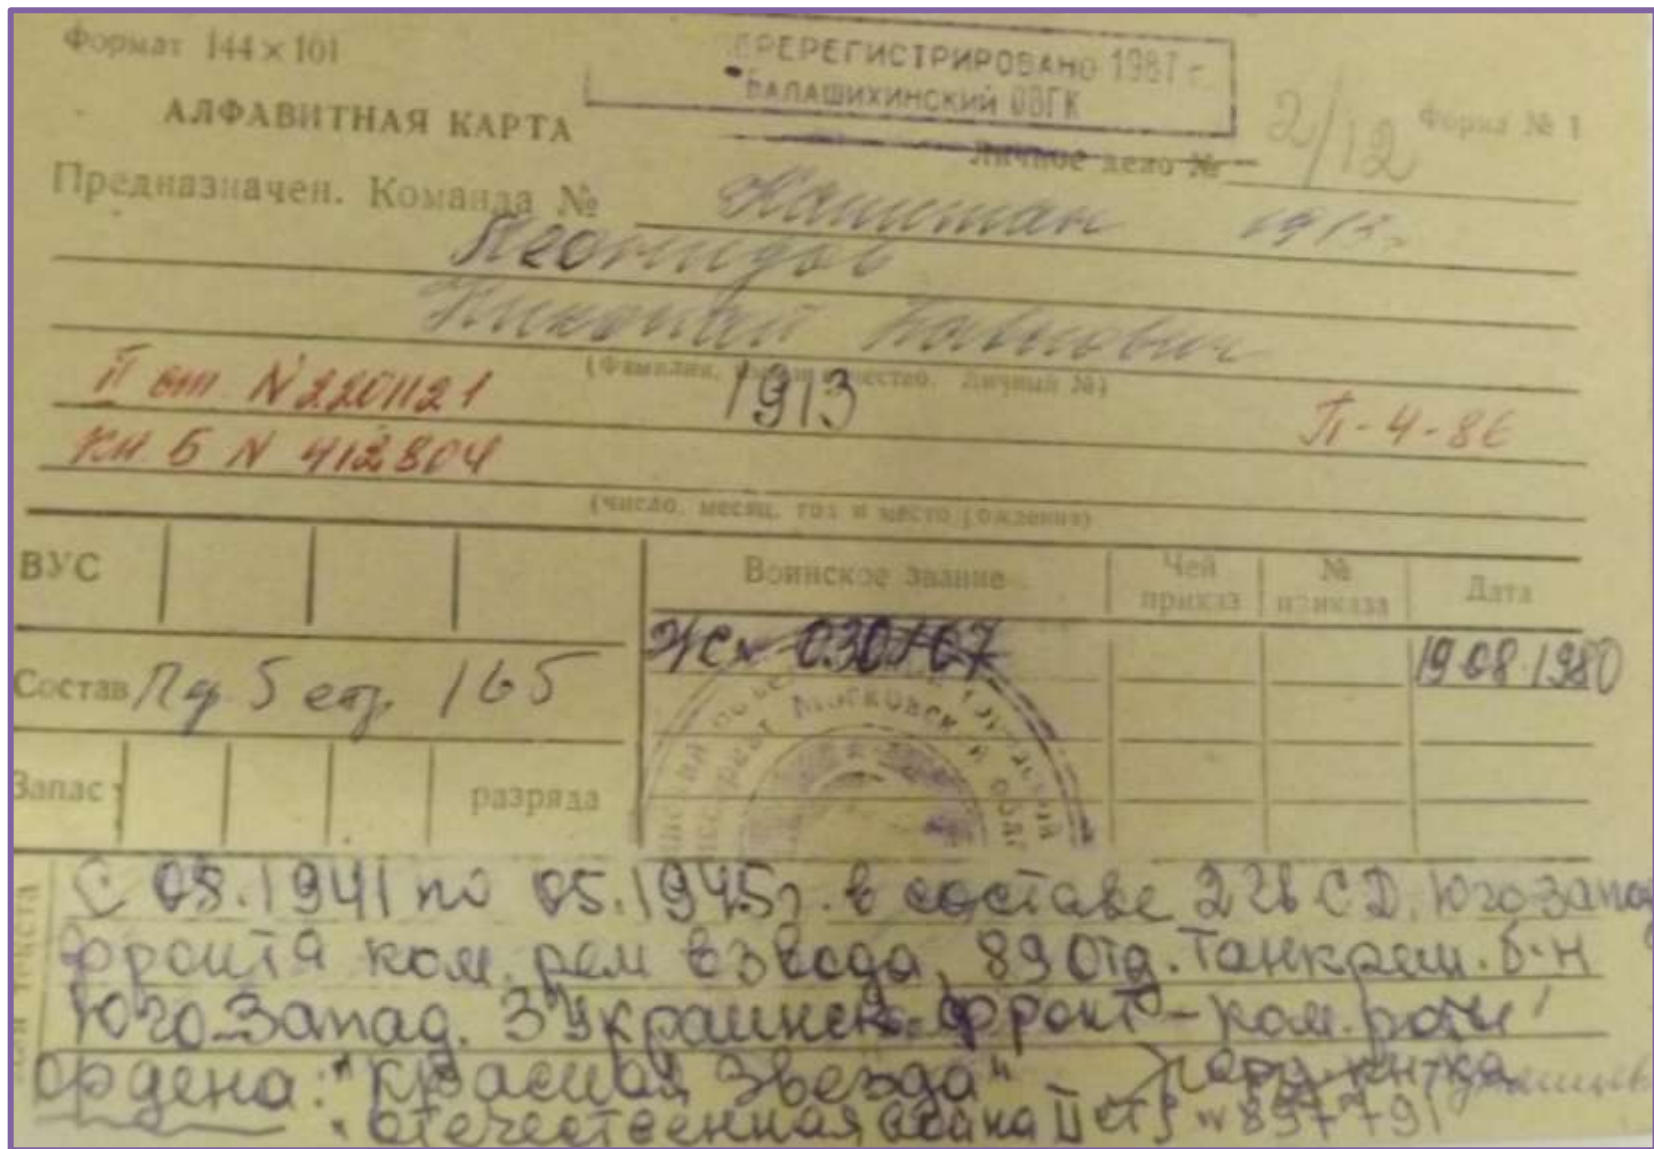 Формат 144×101
ПЕРЕРЕГИСТРИРОВАНО 1987 г.
БАЛАШИХИНСКИЙ ОВГК
Форма № 1
АЛФАВИТНАЯ КАРТА
Личное дело № 2/12
Предназначен. Команда № Капитан 1913г.
Леонидов
Николай Павлович
(Фамилия, имя и отчество. Личный №)
II ст. N 2201121 1913 П-4-86
кн Б N 412804
(число, месяц, год и место рождения)
ВУС
Воинское звание
Чей приказ
№ приказа
Дата
030107 19 08.1980
Состав 165
Запас разряда
С 08.1941 по 05.1945г. в составе СД, Юго Запад
фронта ком. рем взвода, 89 отд. Танкрем. б-н
Юго-Запад. 3 Украинск. фронт - ком. роты
Ордена: "Красная Звезда"
"Отечественная война II ст